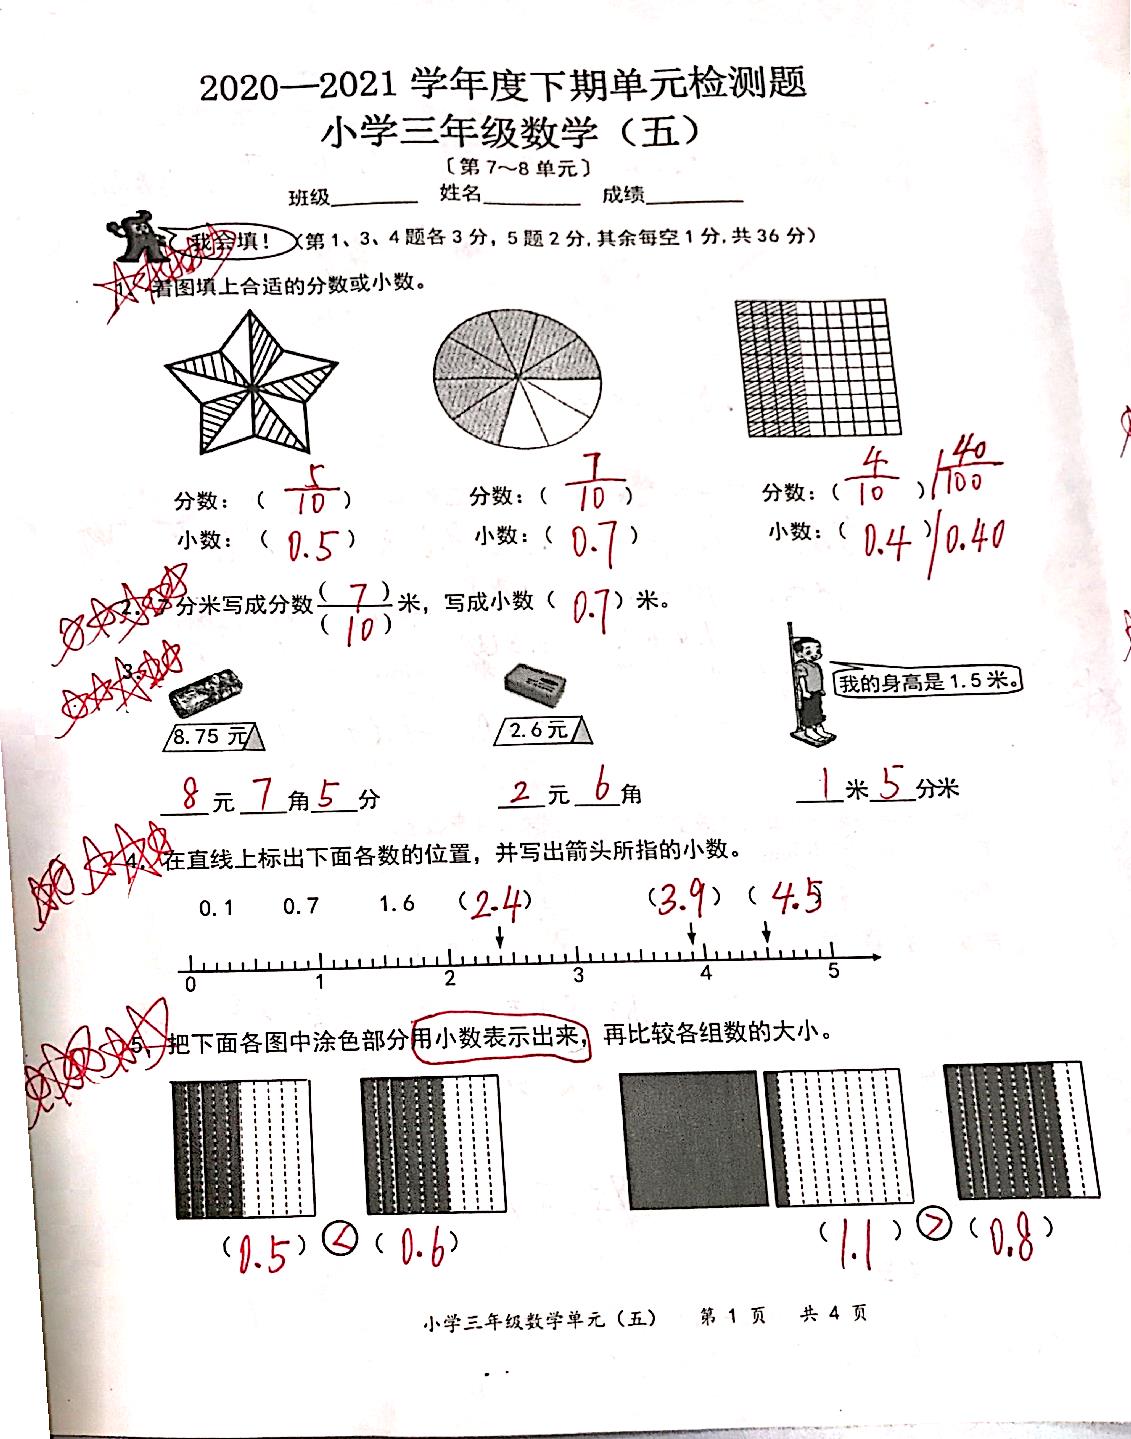 2020—2021 学年度下期单元检测题
小学三年级数学（五）
〔第 7～8 单元〕
班级________ 姓名________ 成绩________
我会填！（第 1、3、4 题各 3 分，5 题 2 分，其余每空 1 分，共 36 分）
1. 看图填上合适的分数或小数。
分数：（ 5/10 ） 分数：（ 7/10 ） 分数：（ 4/10 ）/ 40/100
小数：（ 0.5 ） 小数：（ 0.7 ） 小数：（ 0.4 ）/ 0.40
2. 7 分米写成分数（ 7 ）/（ 10 ）米，写成小数（ 0.7 ）米。
3.
8.75 元 2.6 元 我的身高是 1.5 米。
8 元 7 角 5 分 2 元 6 角 1 米 5 分米
4. 在直线上标出下面各数的位置，并写出箭头所指的小数。
0.1 0.7 1.6 （2.4） （3.9） （4.5）
0 1 2 3 4 5
5、把下面各图中涂色部分用小数表示出来，再比较各组数的大小。
（0.5）<（0.6） （1.1）>（0.8）
小学三年级数学单元（五） 第 1 页 共 4 页